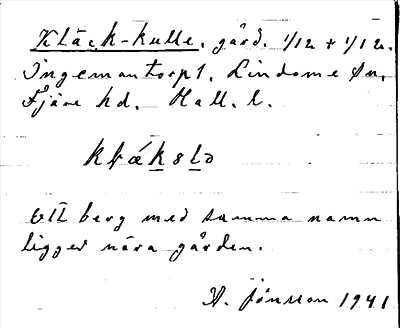 Kläck-kulle, gård. 1/12 + 1/12.
Ingemantorp 1, Lindome sn,
Fjäre hd. Hall. l.
Ett berg med samma namn
ligger nära gården.
A. Jönsson 1941